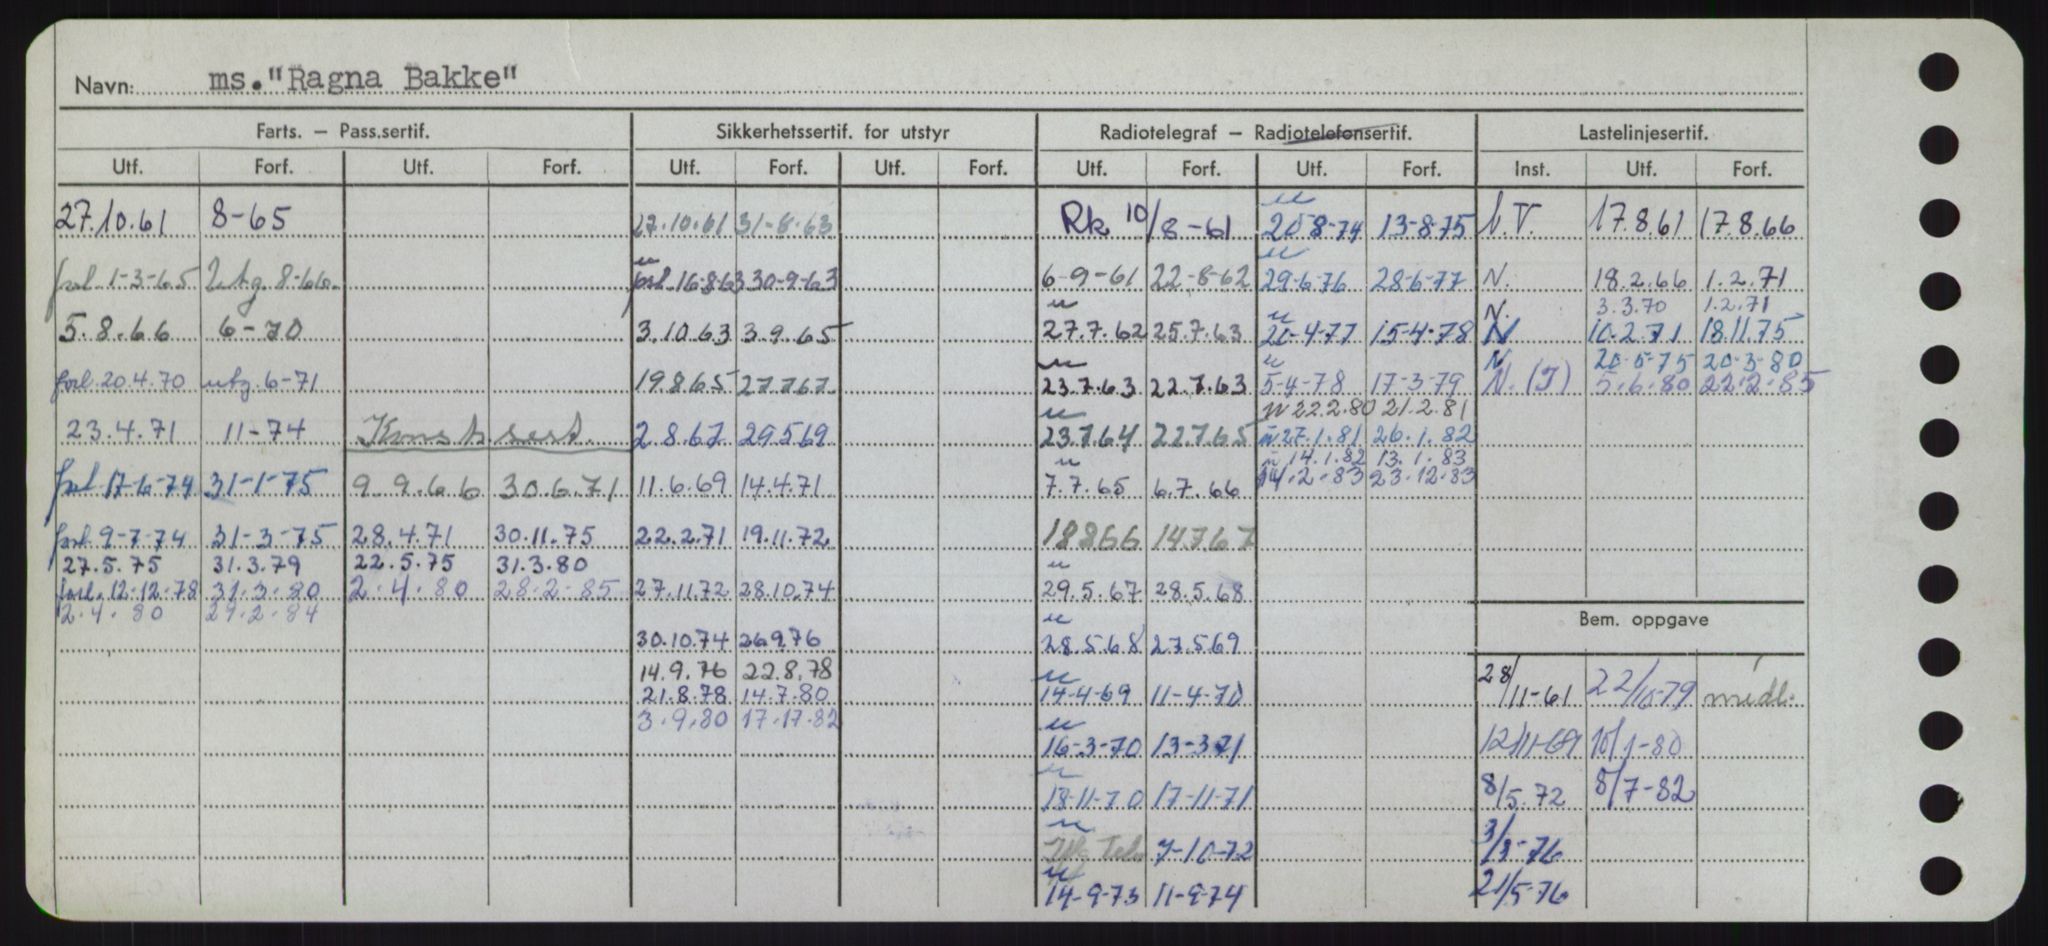 Navn: ms. "Ragna Bakke"
Farts. – Pass.sertif. Sikkerhetssertif. for utstyr Radiotelegraf – Radiotelefonsertif. Lastelinjesertif.
Utf. Forf. Utf. Forf. Utf. Forf. Utf. Forf. Utf. Forf. Utf. Forf. Inst. Utf. Forf.
27.10.61 8-65 27.10.61 31-8-63 Rk 10/8-61 20-8-74 13-8-75 N.V. 17.8.61 17.8.66
forl. 1-3-65 Utg. 8-66 forl. 16-8-63 30-9-63 6-9-61 22-8-62 29-6-76 28-6-77 N. 18.2.66 1.2.71
N. 3.3.70 1.2.71
5.8.66 6-70 3.10.63 3.9.65 27.7.62 25.7.63 20-4-77 15-4-78 N 10.2.71 18.11.75
N. 20-5-75 20-3-80
forl. 20.4.70 utg. 6-71 19.8.65 27.7.67 23.7.63 22.7.63 5-4-78 17-3-79 N. (I) 5.6.80 22.2.85
22.2.80 21.2.81
23.4.71 11-74 Konst. sert. 2.8.67 29.5.69 23.7.64 22.7.65 27.1.81 26.1.82
14.1.82 13.1.83
forl. 17-6-74 31-1-75 9.9.66 30.6.71 11.6.69 14.4.71 7.7.65 6.7.66 14.2.83 23.12.83
forl. 9-7-74 31-3-75 28.4.71 30.11.75 22.2.71 19.11.72 18866 14767
27.5.75 31.3.79 22.5.75 31.3.80
forl. 12.12.78 31.3.80 2.4.80 28.2.85 27.11.72 28.10.74 29.5.67 28.5.68
2.4.80 29.2.84
Bem. oppgave
30.10.74 26.9.76 28.5.68 27.5.69
14.9.76 22.8.78
28/11-61 22/10-79 midl.
21.8.78 14.7.80 14-4-69 11-4-70
3.9.80 17.17.82
16-3-70 13-3-71 12/11-69 10/1-80
18-11-70 17-11-71 8/5.72 8/7-82
7-10-72 3/3-76
14-9-73 11-9-74 21/5-76